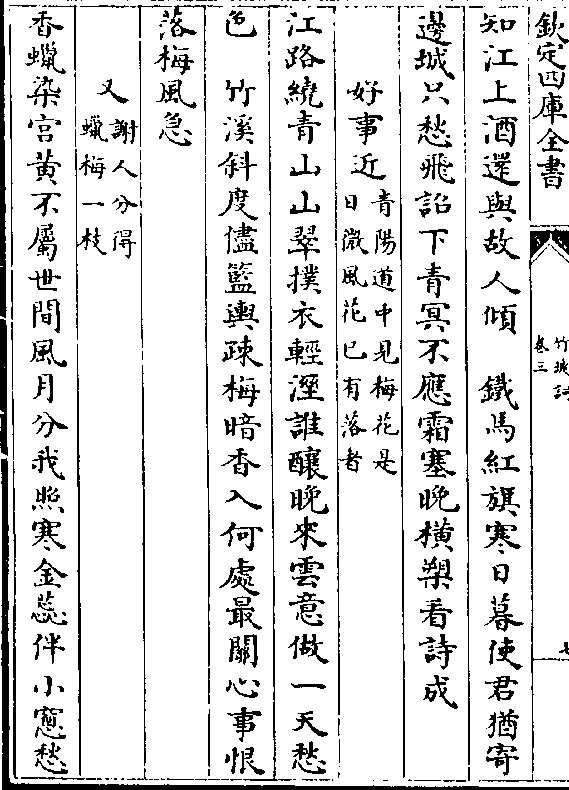 欽定四庫全書
竹坡詞
卷三
知江上酒還與故人傾　鐵馬紅旗寒日暮使君猶寄
邊城只愁飛詔下青冥不應霜塞晚橫槊看詩成
好事近青陽道中見梅花是
日微風花已有落者
江路繞青山山翠撲衣輕溼誰釀晚來雲意做一天愁
色　竹溪斜度儘籃輿疎梅暗香入何處最關心事恨
落梅風急
又謝人分得
蠟梅一枝
香蠟染宮黃不屬世間風月分我照寒金蕊伴小窻愁